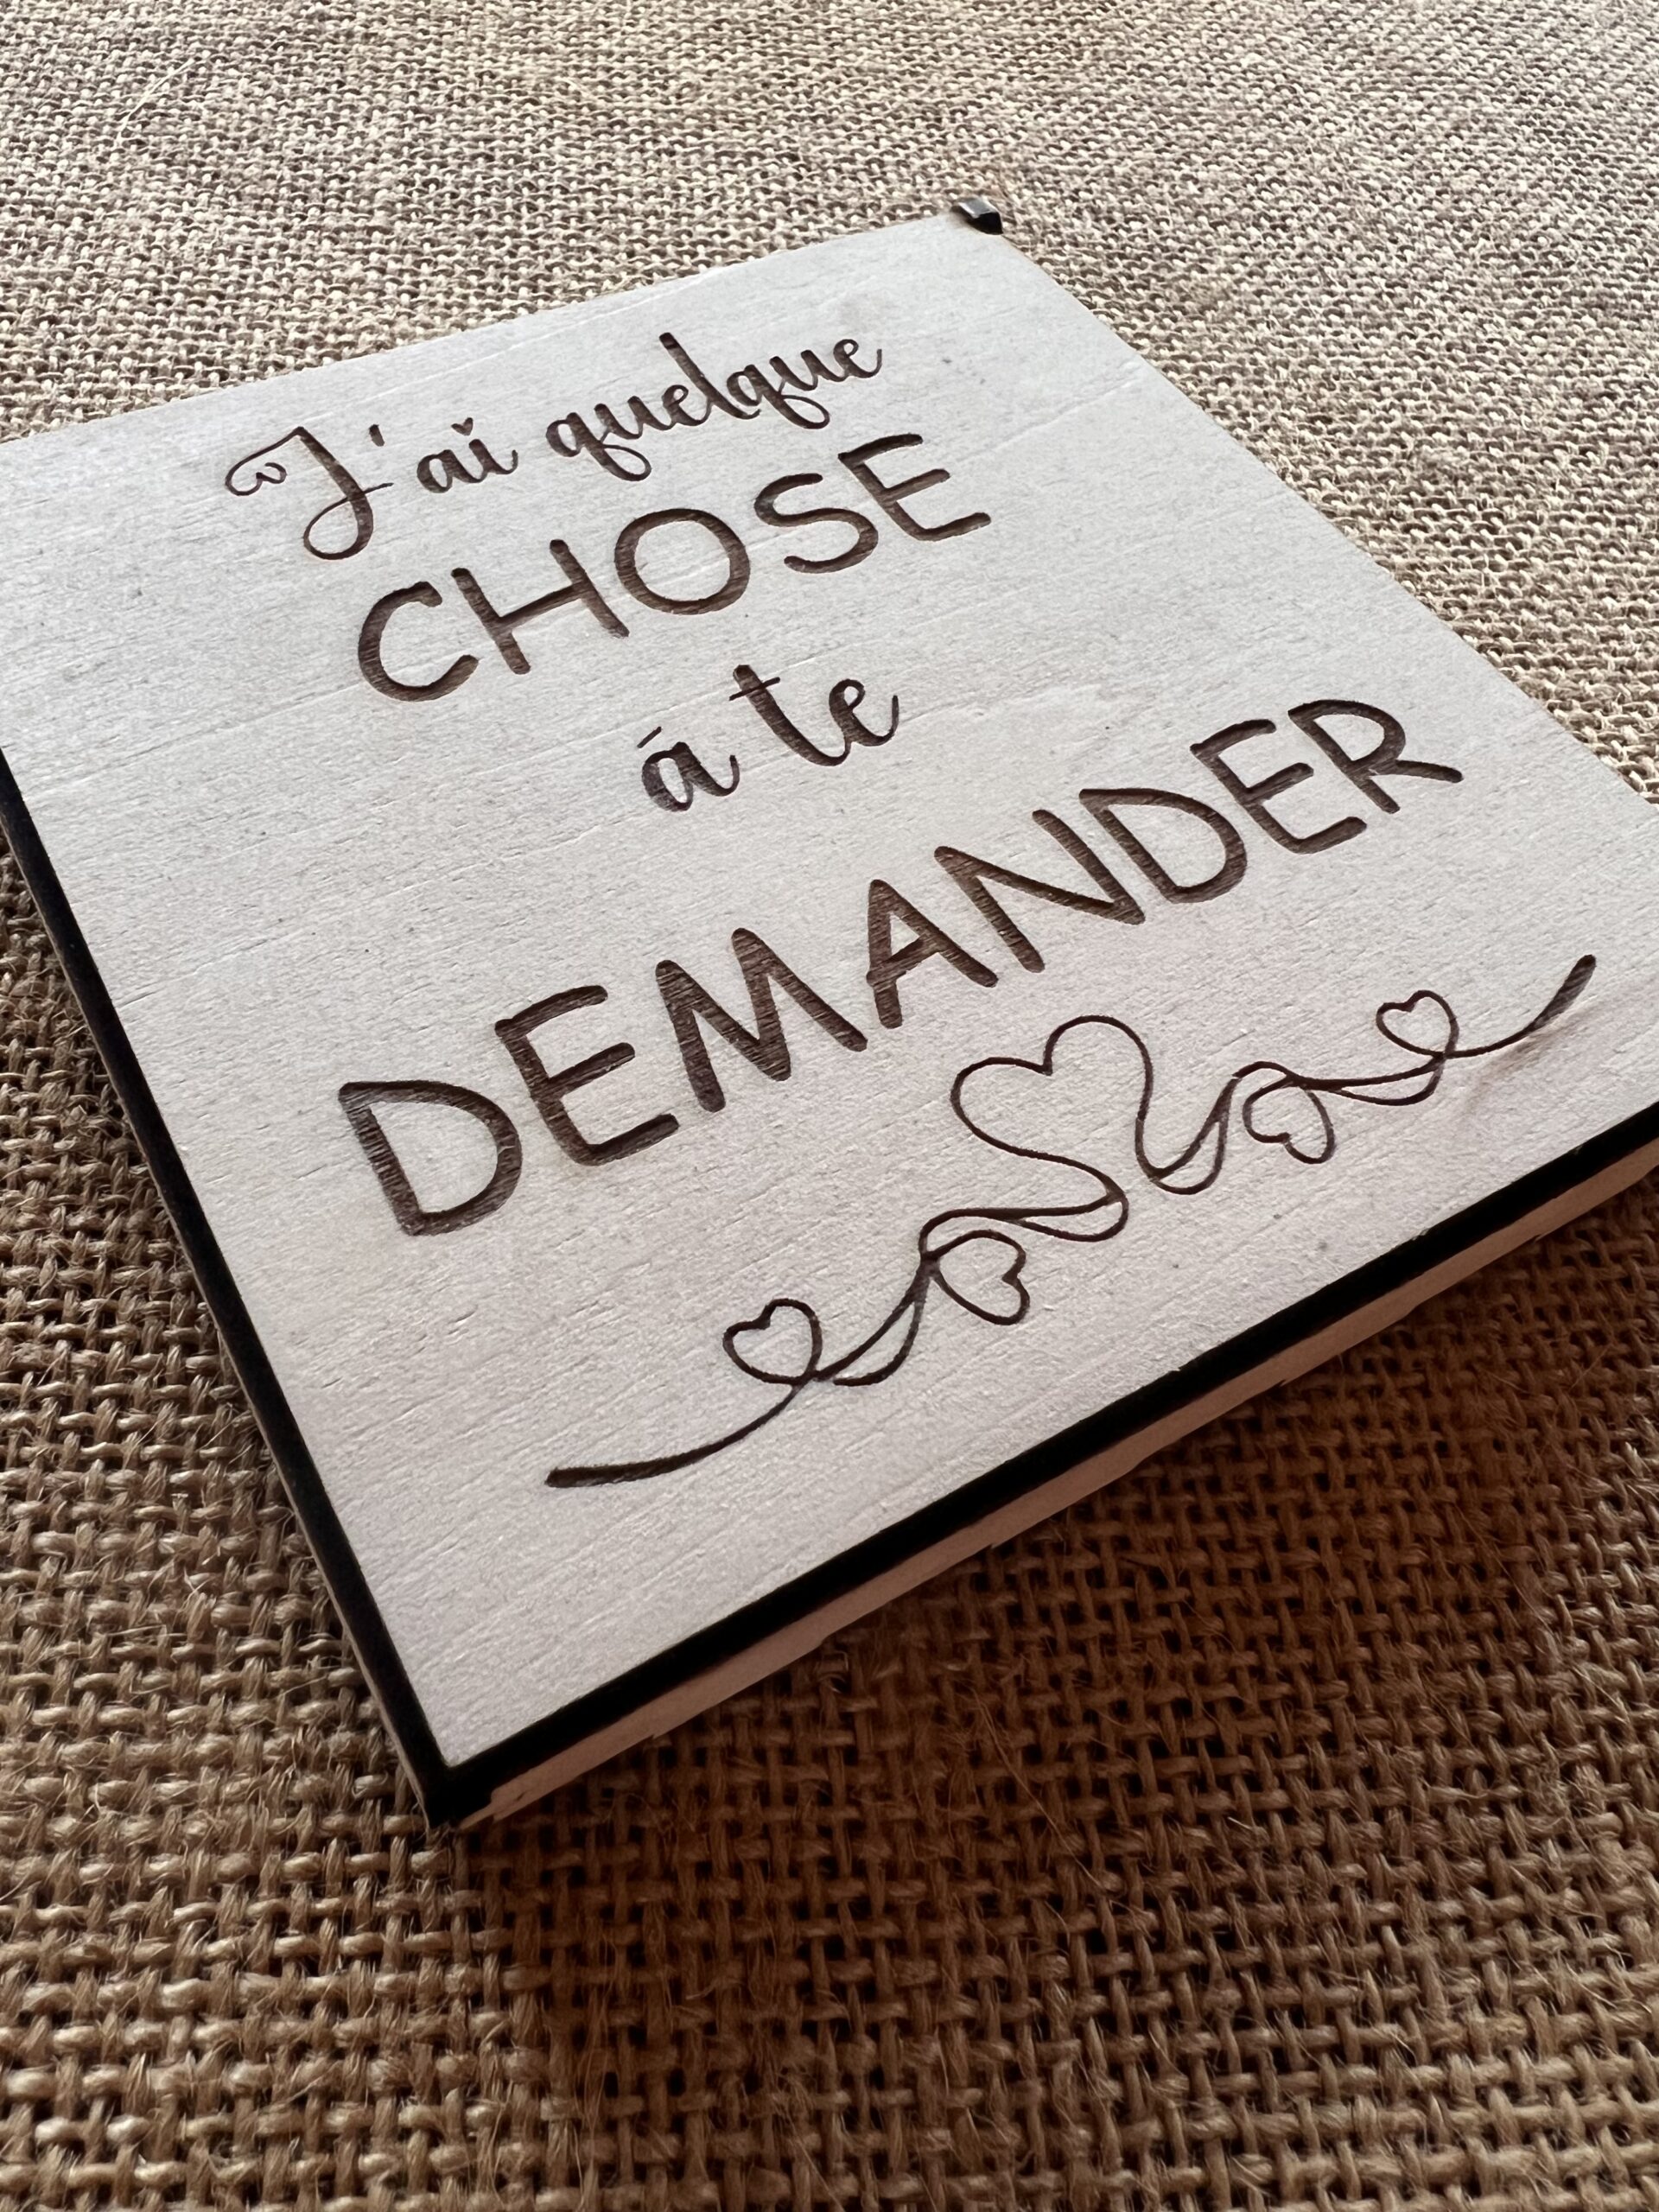 J'ai quelque
CHOSE
á te
DEMANDER